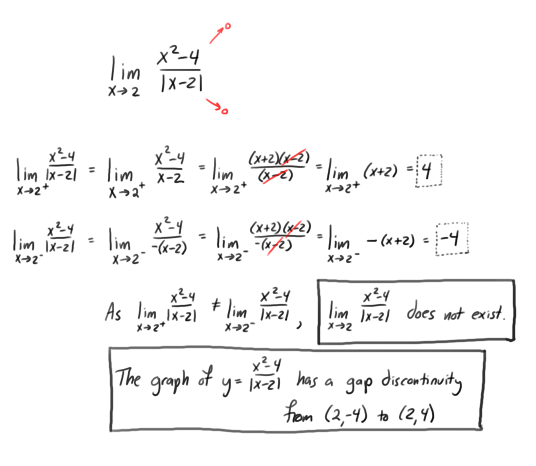 lim x→2 (x²-4)/|x-2| ↗0 ↘0
lim x→2⁺ (x²-4)/|x-2| = lim x→2⁺ (x²-4)/(x-2) = lim x→2⁺ (x+2)(x-2)/(x-2) = lim x→2⁺ (x+2) = 4
lim x→2⁻ (x²-4)/|x-2| = lim x→2⁻ (x²-4)/-(x-2) = lim x→2⁻ (x+2)(x-2)/-(x-2) = lim x→2⁻ -(x+2) = -4
As lim x→2⁺ (x²-4)/|x-2| ≠ lim x→2⁻ (x²-4)/|x-2|, lim x→2 (x²-4)/|x-2| does not exist.
The graph of y = (x²-4)/|x-2| has a gap discontinuity
from (2,-4) to (2,4)